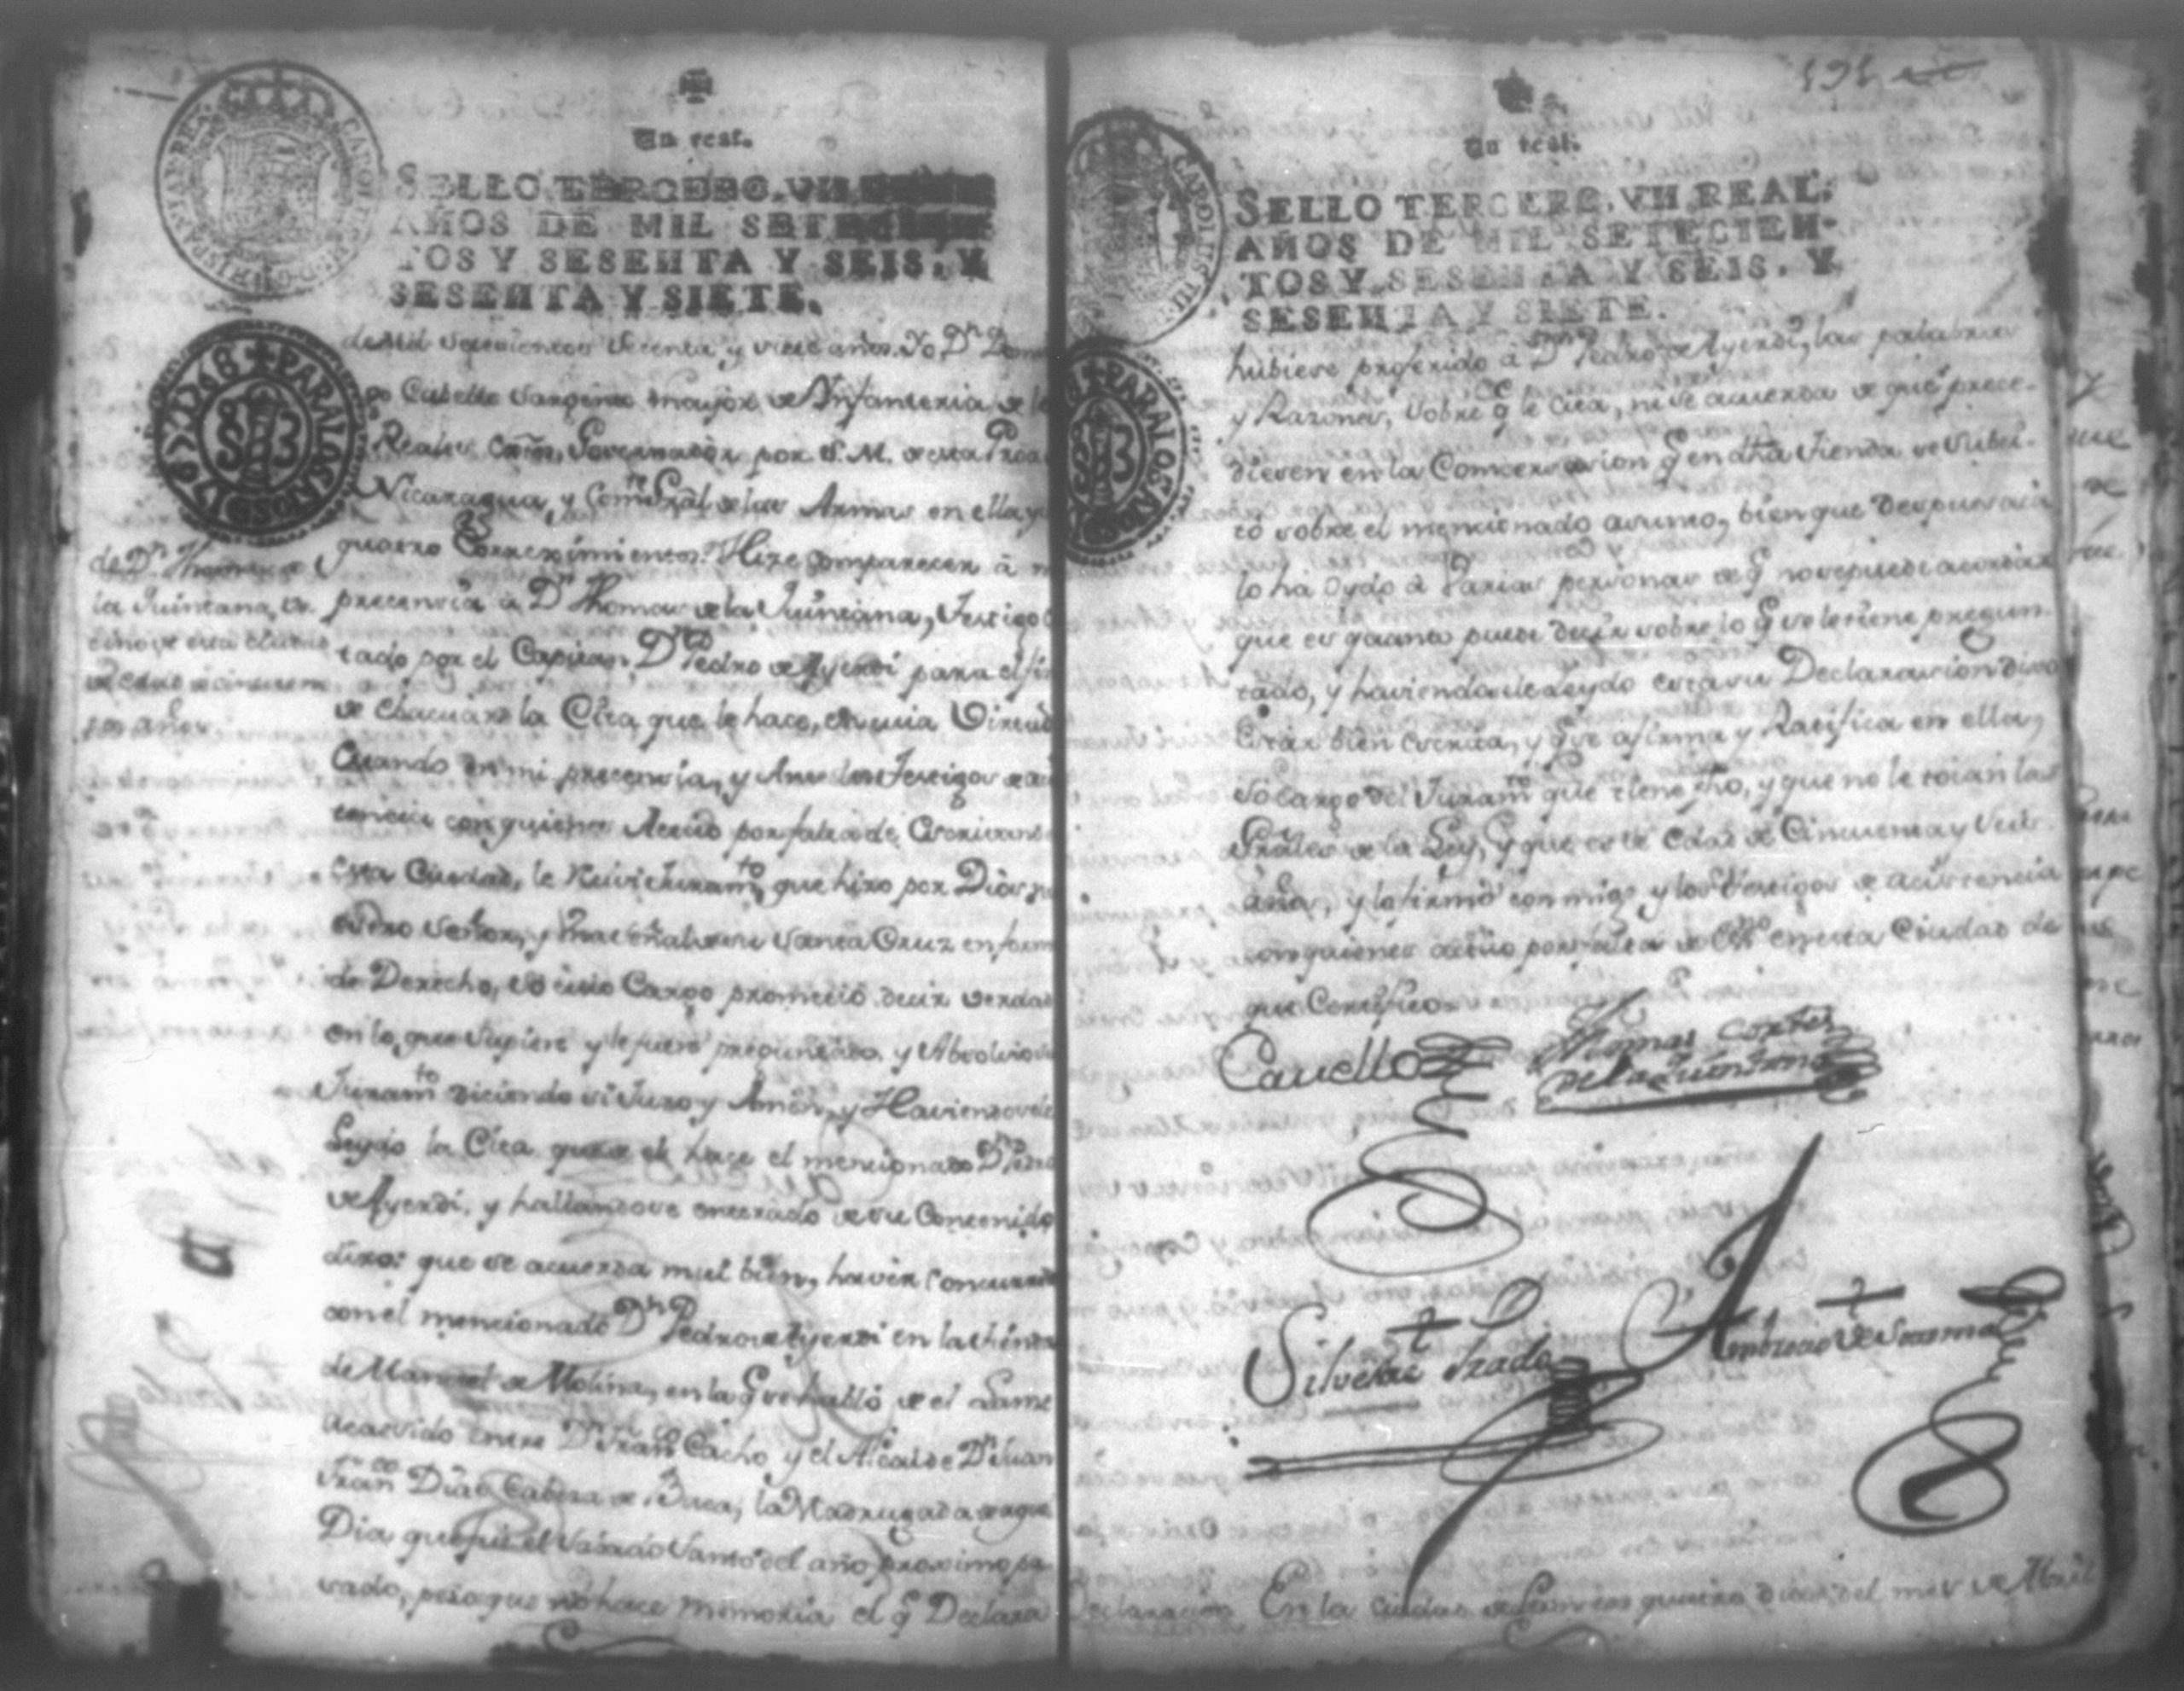 Un real.
SELLO TERCERO, VN
AÑOS DE MIL SETECIEN
TOS Y SESENTA Y SEIS, Y
SESENTA Y SIETE.
HISPANIAR REX CAROLUS III D G
1767 Y 1768 + PARA LOS AÑOS DE
de Mil setecientos secenta y siete años. Yo Dn Domi
go Cabello Sargento mayor de Ynfanteria de lo
Reales Governador por S. M. de esta Proa
Nicaragua, y Comte Gral de las Armas en ella, y
quatro Correximientos: Hize comparecer à m
precencia à Dn Thomas de la Quintana, Testigo
tado por el Capitan Dn Pedro de Ayerdi para el fin
de Ebacuar la Cita que le hace, en cuia Virtud
Estando en mi precencia, y Ante los Testigos de asi
tencia con quienes Actuo por falta de Escrivano
esta Ciudad, le Recivi Juramto que hizo por Dios nu
estro Señor, y una señal de su Santa Cruz en form
de Derecho, so cuio Cargo prometiò decir verdad
en lo que Supiere y le fuere preguntado y Absolvio
Juramto diciendo si Juro y Amen, y Haviendosele
Leydo la Cita que el hace el mencionado Dn Pedro
de Ayerdi, y hallandose enterado de su Contenido
dixo: que se acuerda mui bien, haver Concurrido
con el mencionado Dn Pedro de Ayerdi en la thienda
de Manuel de Molina, en la q se hablò de el Lanze
acaecido entre Dn Franco Cacho y el Alcalde Dn Juan
Franco Dias Cabeza de Baca, la Madrugada de aquel
Dia que fue el Sabado Santo del año proximo pa
sado, pero que no hace memoria el q Declara
de Dn Thomas de
la Quintana, ve
cino de esta Ciudad
de edad de cinquenta
años
191
Un real.
SELLO TERCERO, VN REAL,
AÑOS DE MIL SETECIEN-
TOS Y SESENTA Y SEIS, Y
SESENTA Y SIETE.
CAROLUS III
+ PARA LOS AÑOS
hubiese proferido à Dn Pedro de Ayerdi, las palabras
y Razones, sobre q se le Cita, ni se acuerda de que prece-
diesen en la Comversasion q en dha tienda se susci-
tò sobre el mencionado asumto, bien que despues acà
lo ha Oydo à Varias personas de q no se puede acordar
que es quanto puede decir sobre lo q se le tiene pregun-
tado, y haviendosele Leydo esta su Declarasion dixo
Estar bien escrita, y q se afirma y Ratifica en ella,
so cargo del Juramto que tiene fho, y que no le tocan las
Grales de la Ley, y que es de edad de Cinquenta y Seis
años, y lo firmò conmigo y los Testigos de acistencia
con quienes actuo por falta de Esno en esta Ciudad de
que Certifico.
Cavello
Thomas Cortes
de la Quintana
Silvestre Prado
Ambrosio de
Declarasion En la Ciudad de Leon en quatro dias del mes de Abril